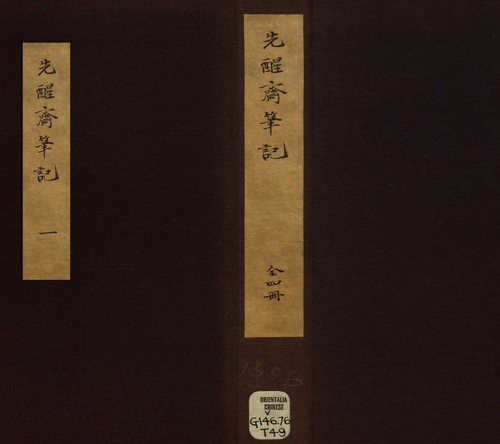 先醒齋筆記
全四冊
先醒齋筆記
一
ORIENTALIA
CHINESE
G146.76
T49